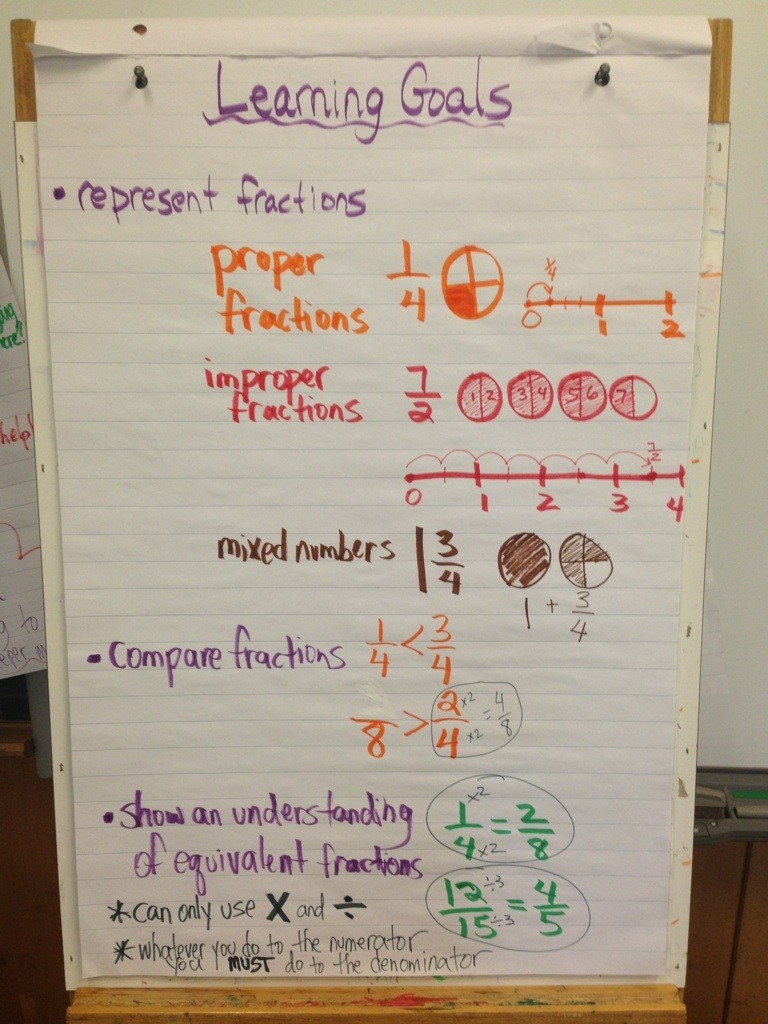 Learning Goals
• represent fractions
proper 1/4
fractions
1/4
0 1 2
improper 7/2 1 2 3 4 5 6 7
fractions
7/2
0 1 2 3 4
mixed numbers 1 3/4
1 + 3/4
• compare fractions 1/4 < 3/4
/8 > 2/4 x2 x2 = 4/8
• show an understanding 1/4 x2 x2 = 2/8
of equivalent fractions
12/15 ÷3 ÷3 = 4/5
* can only use X and ÷
* whatever you do to the numerator
you MUST do to the denominator
help!
g to